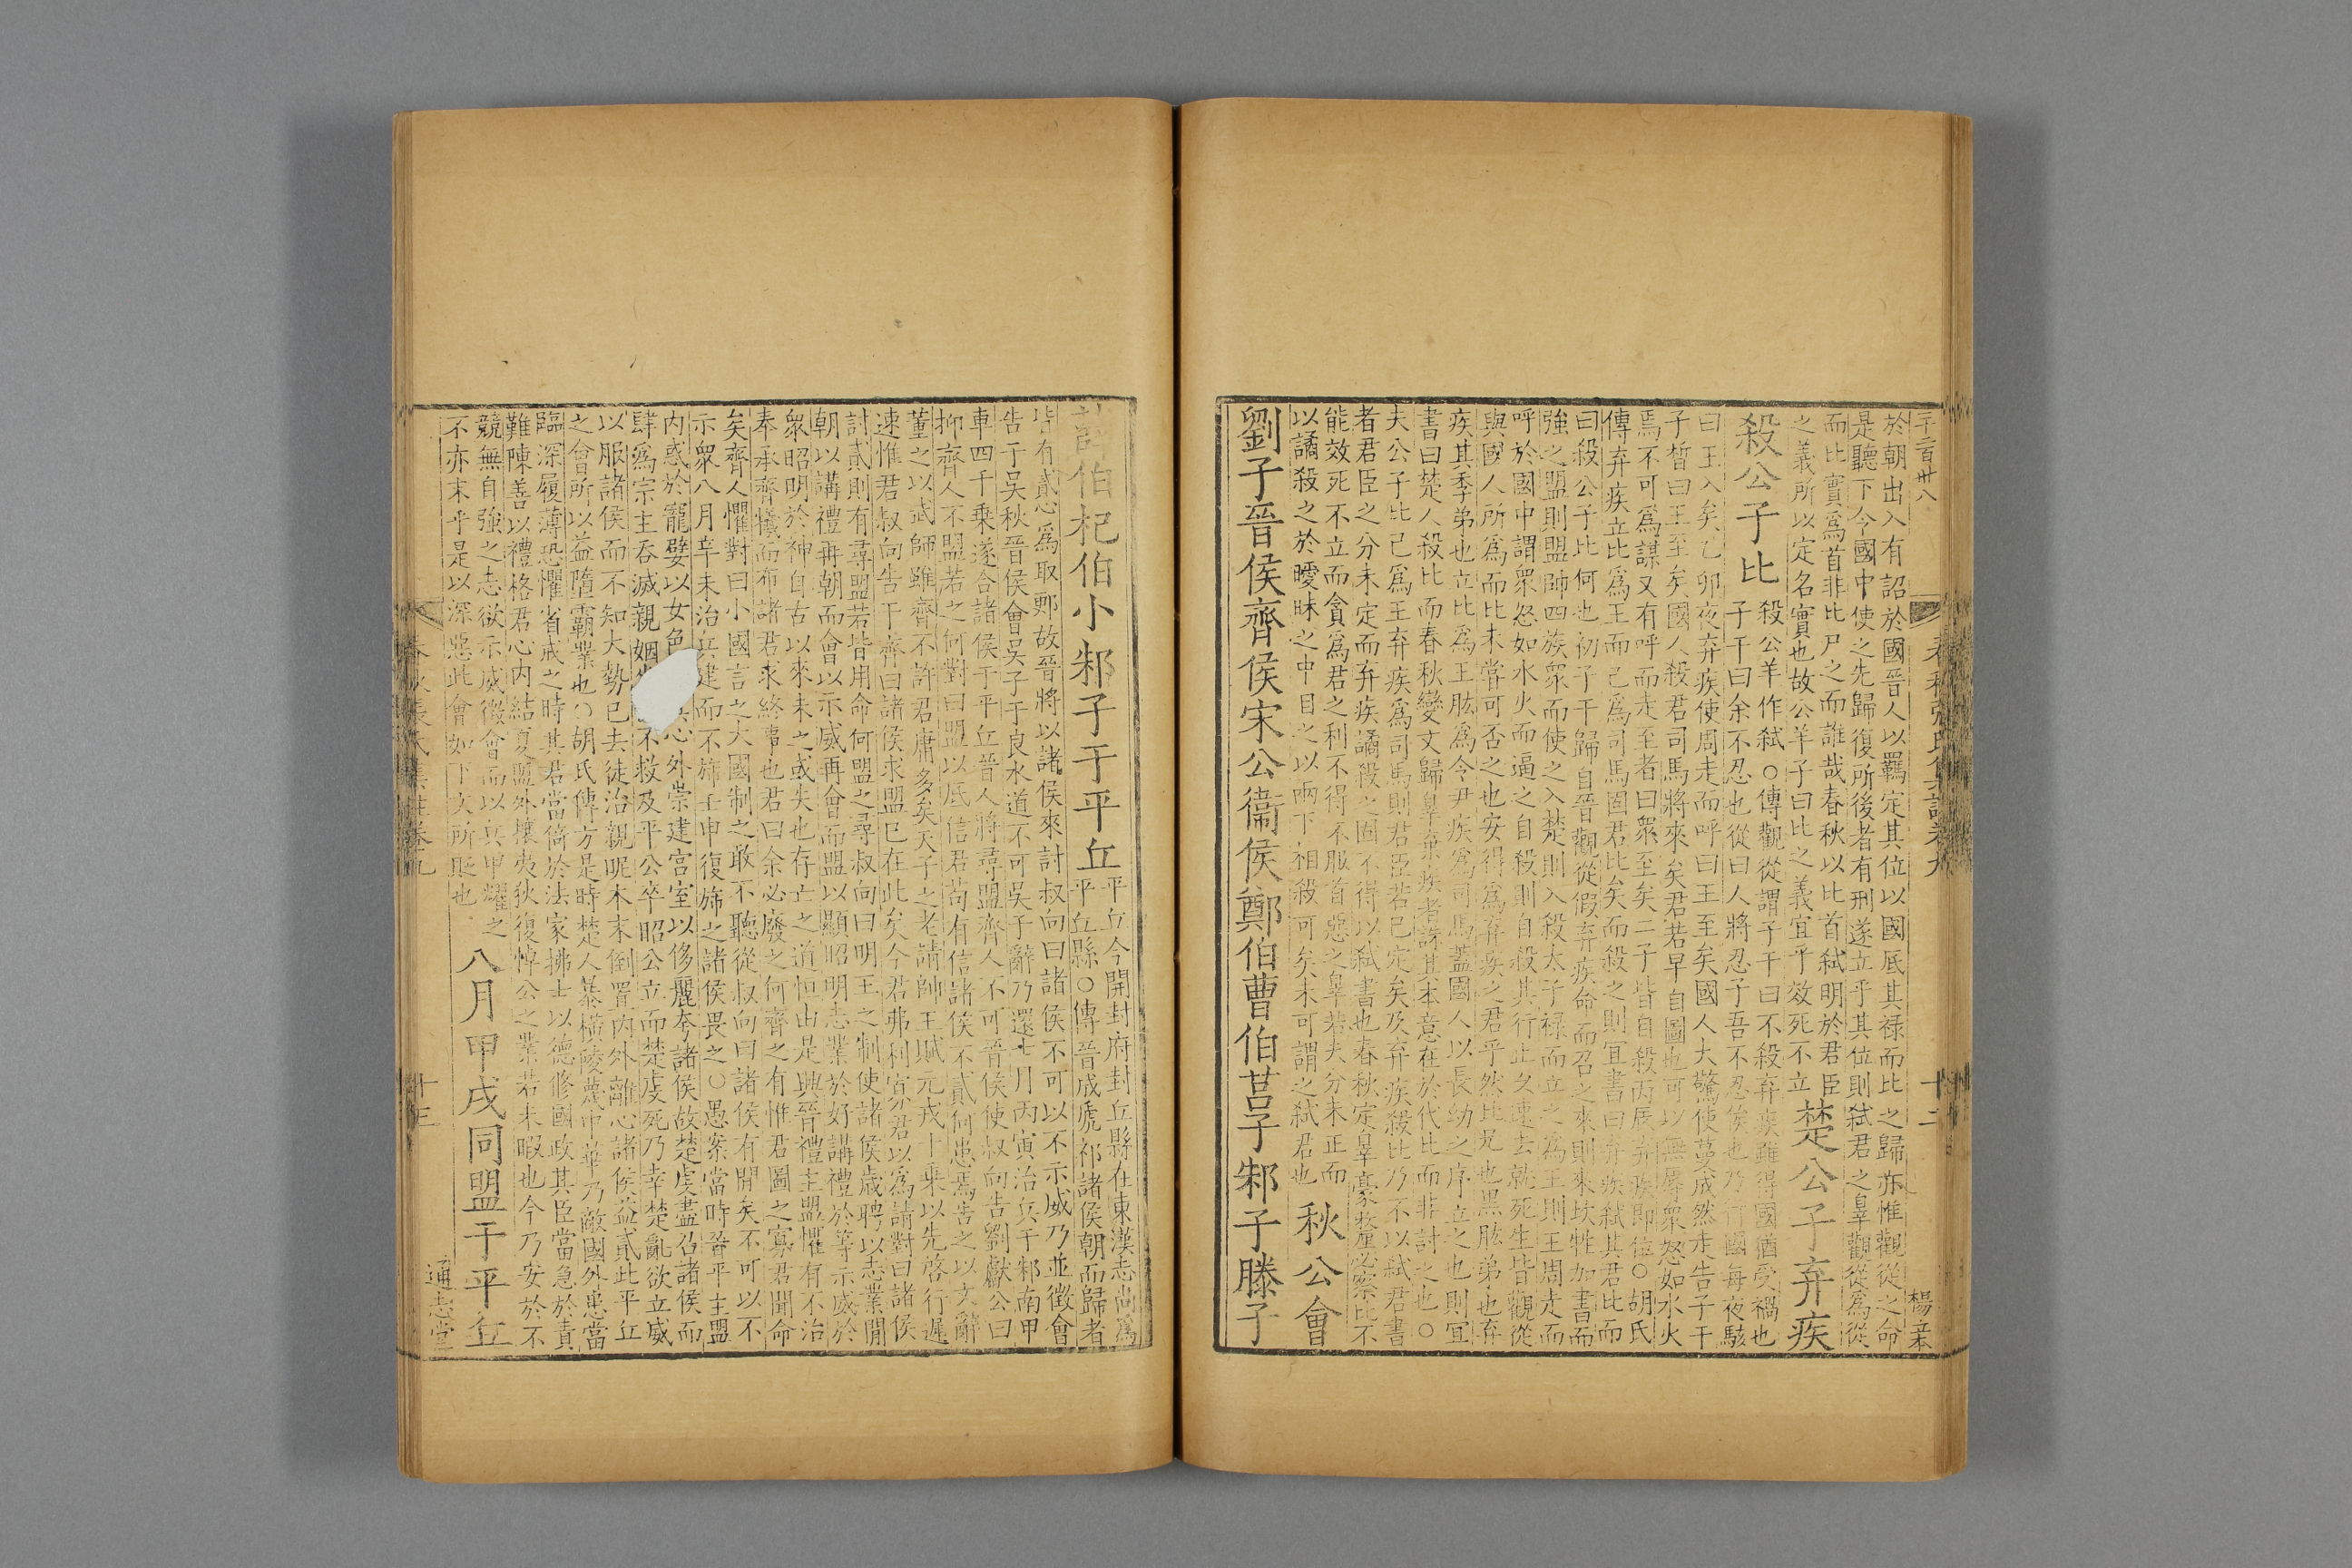 於朝出入有詔於國晉人以羈定其位以國厎其祿而比之歸亦惟觀從之命
是聽下令國中使之先歸復所後者有刑遂立乎其位則弒君之辠觀從爲從
而比實爲首非比尸之而誰哉春秋以比首弒明於君臣
之義所以定名實也故公羊子曰比之義宜乎效死不立
楚公子弃疾
殺公子比
殺公羊作弒○傳觀從謂子干曰不殺弃疾雖得國猶受禍也
子干曰余不忍也從曰人將忍子吾不忍俟也乃行國每夜駭
曰王入矣乙卯夜弃疾使周走而呼曰王至矣國人大驚使蔓成然走告子干
子晳曰王至矣國人殺君司馬將來矣君若早自圖也可以無辱衆怒如水火
焉不可爲謀又有呼而走至者曰衆至矣二子皆自殺丙辰弃疾即位○胡氏
傳弃疾立比爲王而己爲司馬固君比矣而殺之則宜書曰弃疾弒其君比而
曰殺公子比何也初子干歸自晉觀從假弃疾命而召之來則來坎牲加書而
強之盟則盟帥四族衆而使之入楚則入殺太子祿而立之爲王則王周走而
呼於國中謂衆怒如水火而逼之自殺則自殺其行止久速去就死生皆觀從
與國人所爲而比未嘗可否之也安得爲弃疾之君乎然比兄也黑肱弟也弃
疾其季弟也立比爲王肱爲令尹疾爲司馬蓋國人以長幼之序立之也則宜
書曰楚人殺比而春秋變文歸辠弃疾者誅其本意在於代比而非討之也○
夫公子比已爲王弃疾爲司馬則君臣若已定矣及弃疾殺比乃不以弒君書
者君臣之分未定而弃疾譎殺之固不得以弒書也春秋定辠豪釐必察比不
能效死不立而貪爲君之利不得不服首惡之辠若夫分未正而
以譎殺之於曖昧之中目之以兩下相殺可矣未可謂之弒君也
秋公會
劉子晉侯齊侯宋公衞侯鄭伯曹伯莒子邾子滕子
薛伯杞伯小邾子于平丘
平丘今開封府封丘縣在東漢志尚爲
平丘縣○傳晉成虒祁諸侯朝而歸者
皆有貳心爲取郠故晉將以諸侯來討叔向曰諸侯不可以不示威乃並徵會
告于吳秋晉侯會吳子于良水道不可吳子辭乃還七月丙寅治兵于邾南甲
車四千乘遂合諸侯于平丘晉人將尋盟齊人不可晉侯使叔向告劉獻公曰
抑齊人不盟若之何對曰盟以厎信君苟有信諸侯不貳何患焉告之以文辭
董之以武師雖齊不許君庸多矣天子之老請帥王賦元戎十乘以先啓行遲
速惟君叔向告于齊曰諸侯求盟已在此矣今君弗利寡君以爲請對曰諸侯
討貳則有尋盟若皆用命何盟之尋叔向曰明王之制使諸侯歲聘以志業閒
朝以講禮再朝而會以示威再會而盟以顯昭明志業於好講禮於等示威於
衆昭明於神自古以來未之或失也存亡之道恒由是興晉禮主盟懼有不治
奉承齊犧而布諸君求終事也君曰余必廢之何齊之有惟君圖之寡君聞命
矣齊人懼對曰小國言之大國制之敢不聽從叔向曰諸侯有閒矣不可以不
示衆八月辛未治兵建而不旆壬申復旆之諸侯畏之○愚案當時晉平主盟
內惑於寵嬖以女色心外崇建宮室以侈麗夸諸侯故楚虔盡召諸侯而
肆爲宗主吞滅親姻不救及平公卒昭公立而楚虔死乃幸楚亂欲立威
以服諸侯而不知大勢已去徒治親昵木末倒置內外離心諸侯益貳此平丘
之會所以益隳霸業也○胡氏傳方是時楚人暴橫陵蔑中華乃敵國外患當
臨深履薄恐懼省戒之時其君當倚於法家拂士以德修國政其臣當急於責
難陳善以禮格君心內結夏盟外攘夷狄復悼公之業若未暇也今乃安於不
競無自強之志欲示威徵會而以兵甲耀之
不亦末乎是以深惡此會如下文所貶也
八月甲戌同盟于平丘
千二百卅八
春秋張氏集註卷九
十二
楊立本
春秋張氏集註卷九
十三
通志堂